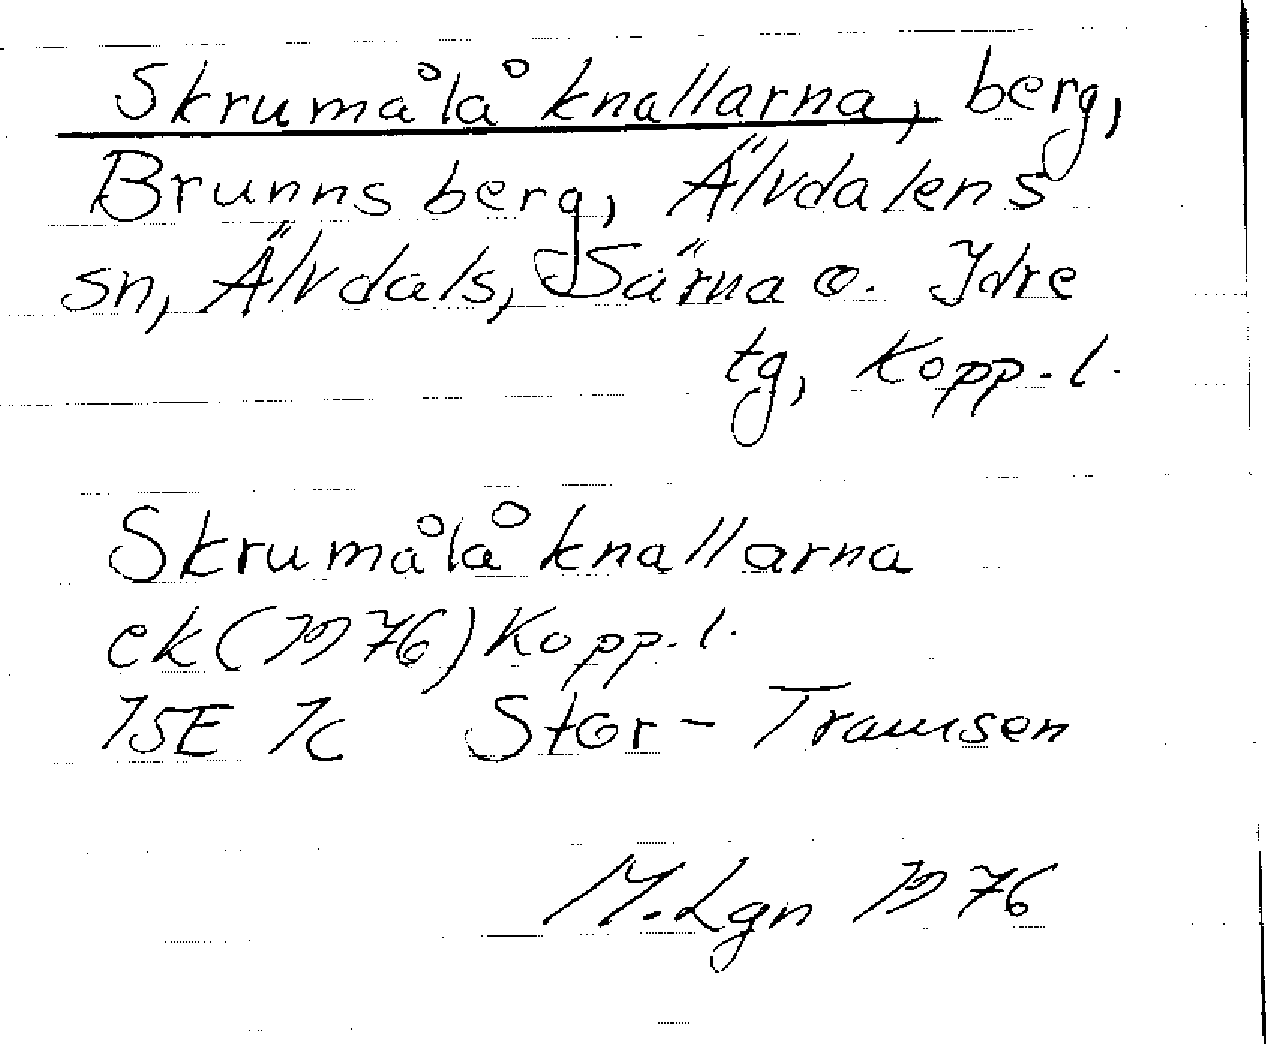 Skrumålåknallarna, berg,
Brunnsberg, Älvdalens
sn, Älvdals, Särna o. Idre
tg, Kopp. l.
Skrumålåknallarna
ek (1976) Kopp. l.
15E 7c Stor-Tramsen
M. Lgn 1976